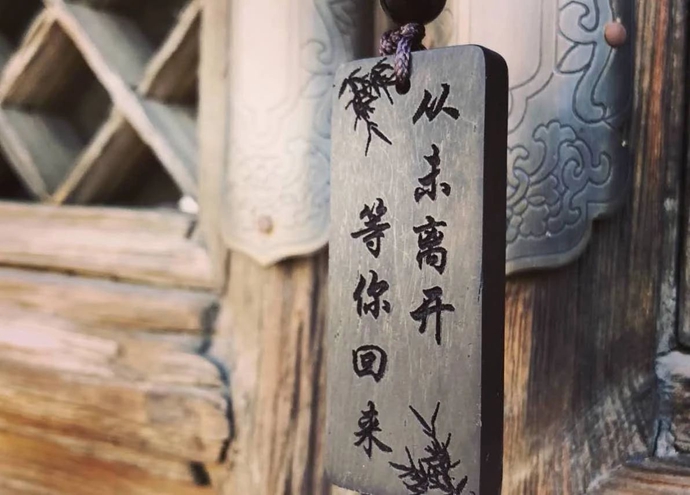 从未离开
等你回来